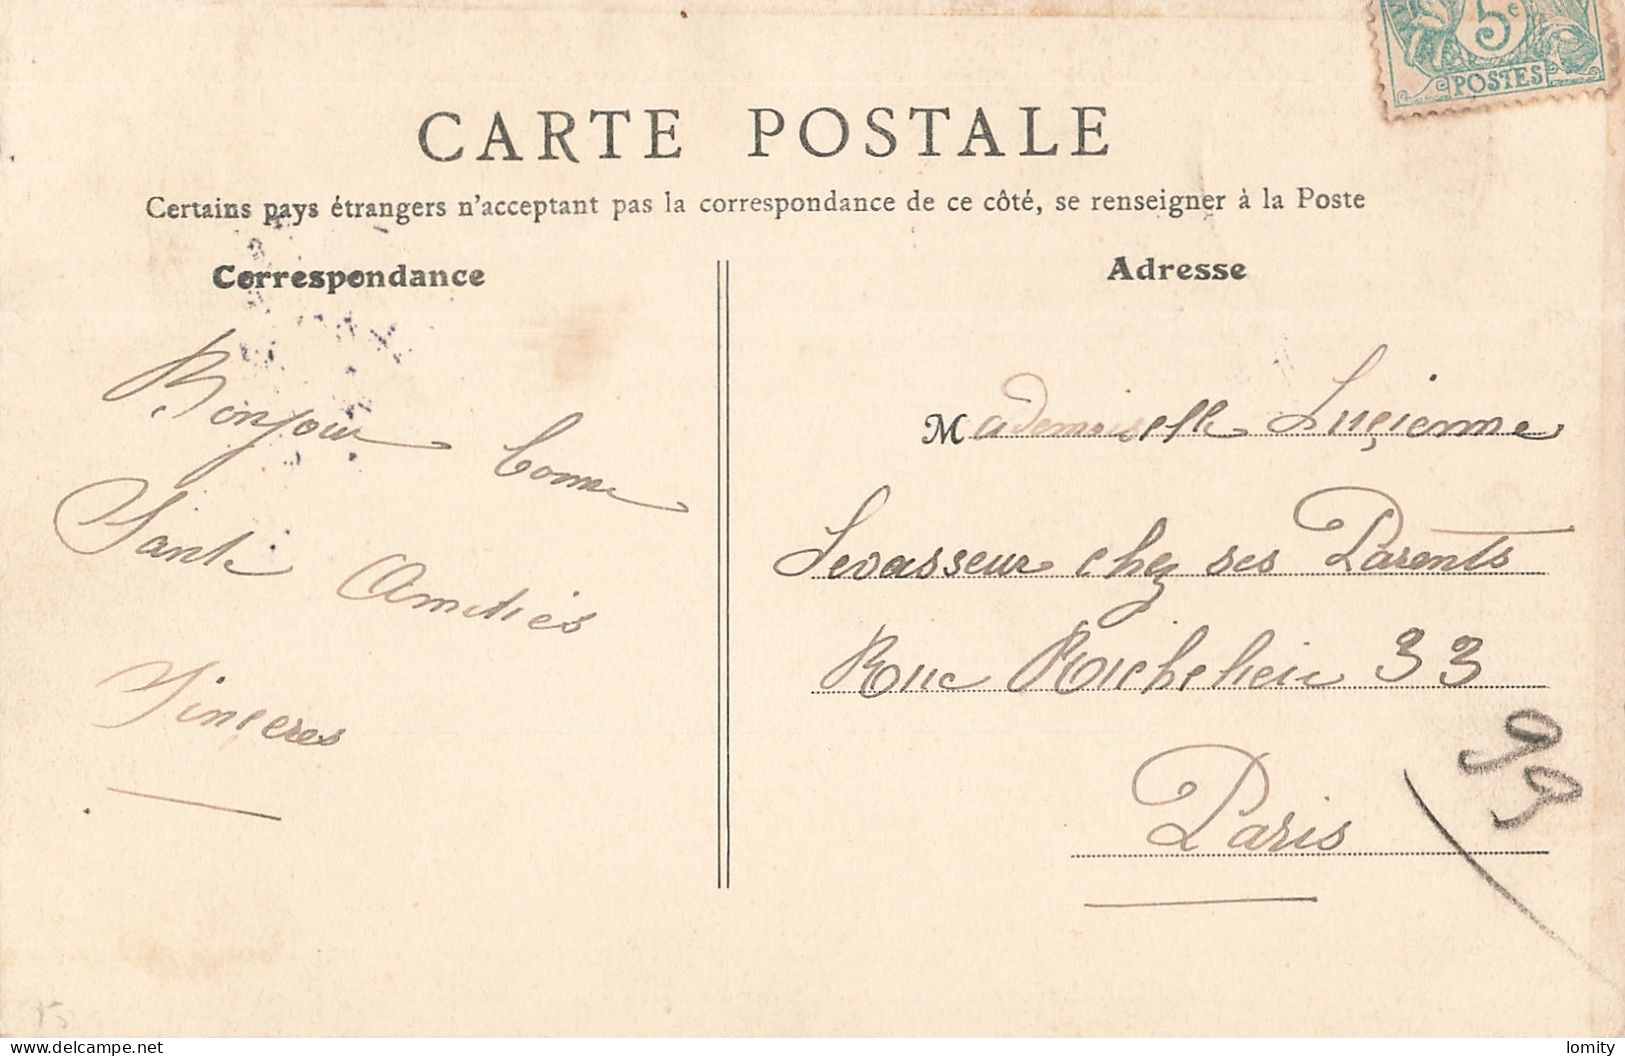 5c
POSTES
CARTE POSTALE
Certains pays étrangers n'acceptant pas la correspondance de ce côté, se renseigner à la Poste
Correspondance
Bonjour bonne
Santé Amitiés
Sinceres
Adresse
Mademoiselle Luçienne
Levasseur chez ses Parents
Rue Richelieu 33
Paris
99
15
lomity
delcampe.net